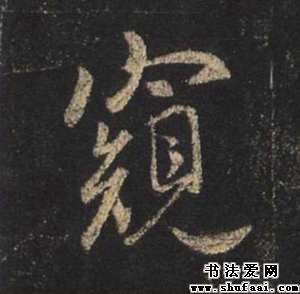 窥
书法爱网
www.shufaai.com